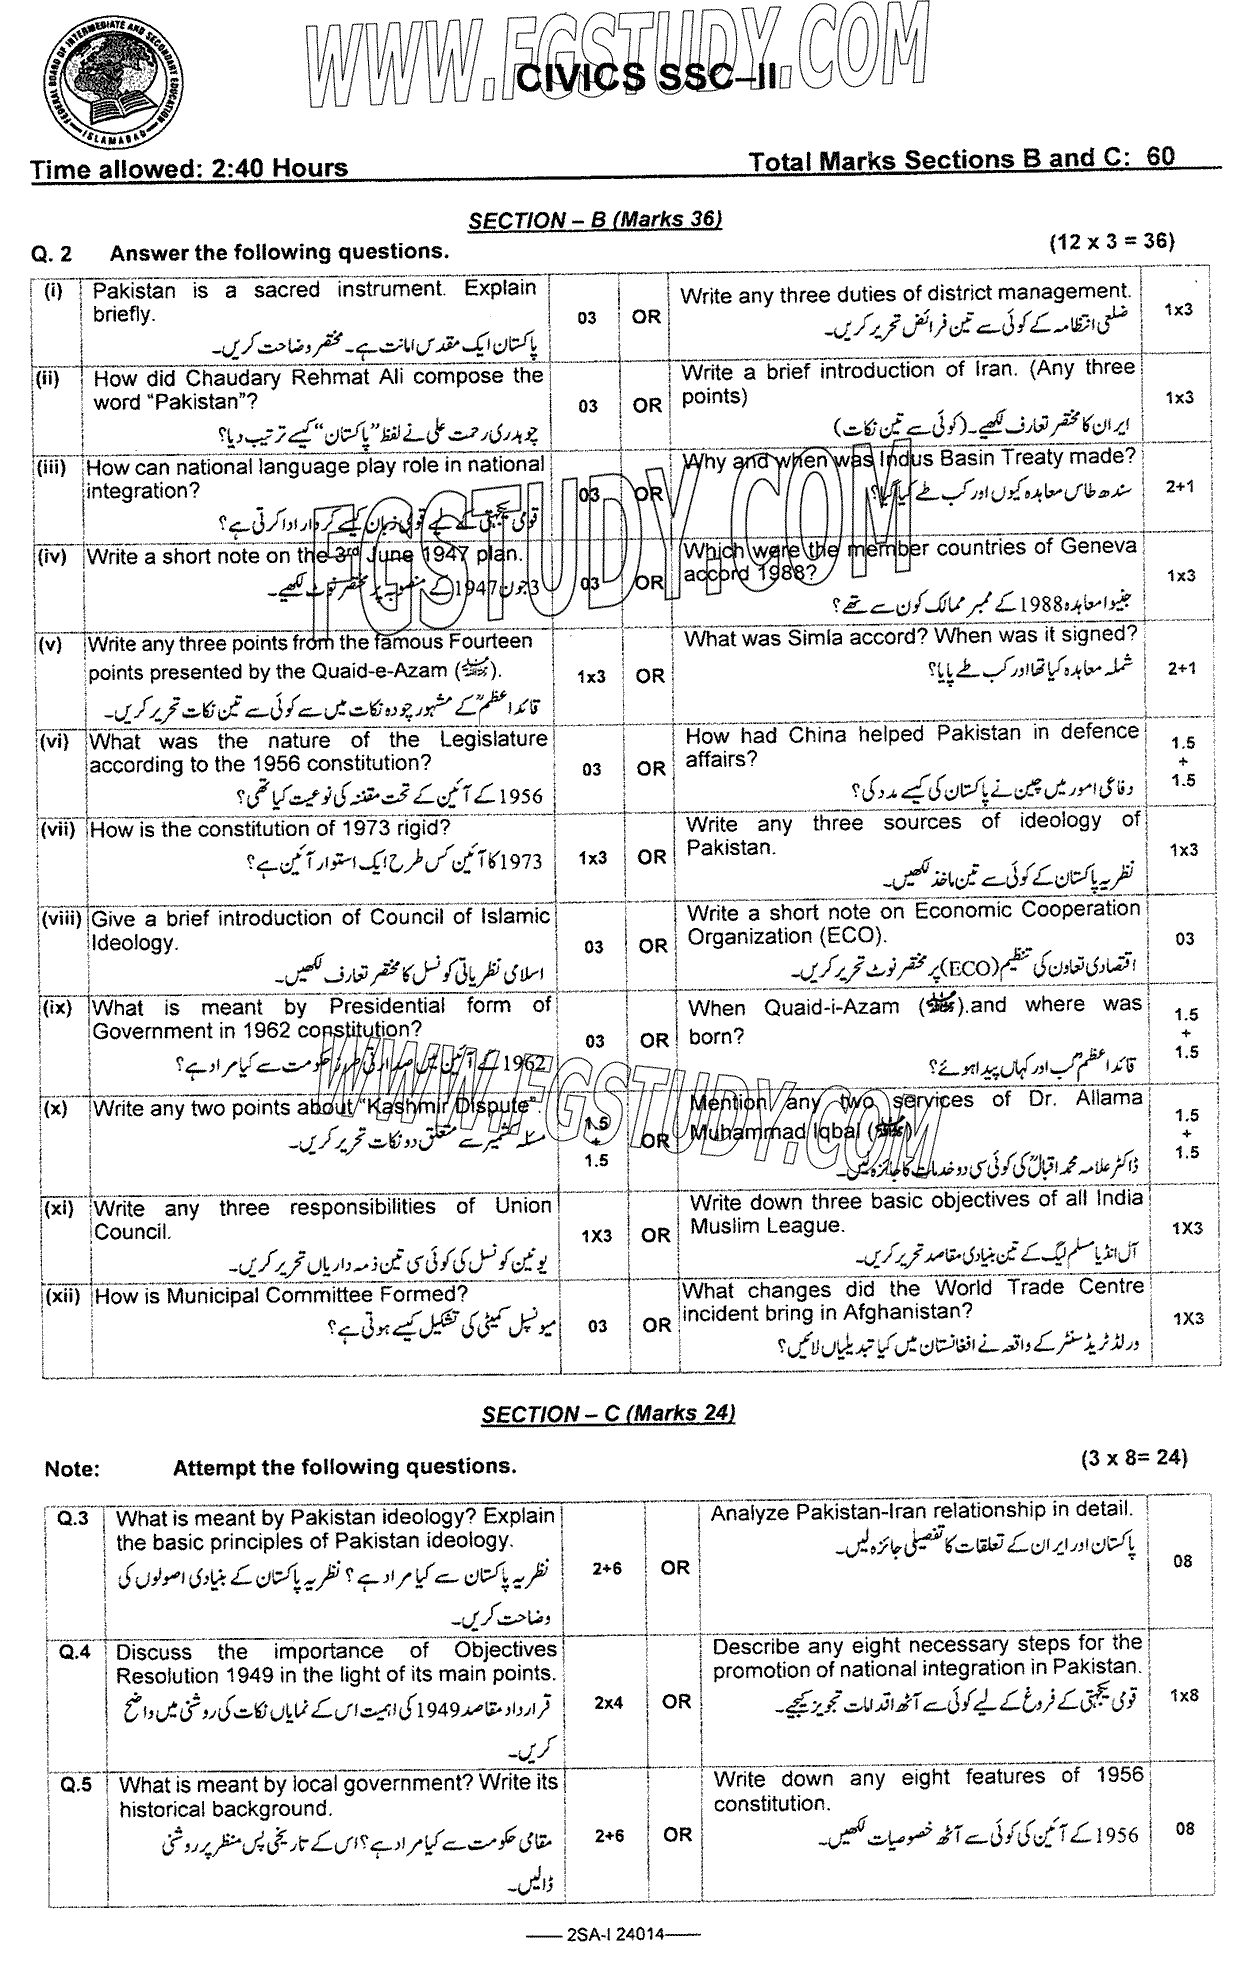 WWW.FGSTUDY.COM
FEDERAL BOARD OF INTERMEDIATE AND SECONDARY EDUCATION
ISLAMABAD
CIVICS SSC–II
Time allowed: 2:40 Hours
Total Marks Sections B and C: 60
SECTION – B (Marks 36)
Q. 2 Answer the following questions.
(12 x 3 = 36)
(i) Pakistan is a sacred instrument. Explain
briefly.
پاکستان ایک مقدس امانت ہے۔ مختصر وضاحت کریں۔
03
OR
Write any three duties of district management.
ضلعی انتظامہ کے کوئی سے تین فرائض تحریر کریں۔
1x3
(ii) How did Chaudary Rehmat Ali compose the
word “Pakistan”?
چوہدری رحمت علی نے لفظ ”پاکستان“ کیسے ترتیب دیا؟
03
OR
Write a brief introduction of Iran. (Any three
points)
ایران کا مختصر تعارف لکھیے۔ (کوئی سے تین نکات)
1x3
(iii) How can national language play role in national
integration?
قومی یکجہتی کے لیے قومی زبان کیسے کردار ادا کرتی ہے؟
03
OR
Why and when was Indus Basin Treaty made?
سندھ طاس معاہدہ کیوں اور کب طے کیا گیا؟
2+1
(iv) Write a short note on the 3rd June 1947 plan.
3 جون 1947 کے منصوبہ پر مختصر نوٹ لکھیے۔
03
OR
Which were the member countries of Geneva
accord 1988?
جنیوا معاہدہ 1988 کے ممبر ممالک کون سے تھے؟
1x3
FGSTUDY.COM
(v) Write any three points from the famous Fourteen
points presented by the Quaid-e-Azam (ﷺ).
قائد اعظمؒ کے مشہور چودہ نکات میں سے کوئی سے تین نکات تحریر کریں۔
1x3
OR
What was Simla accord? When was it signed?
شملہ معاہدہ کیا تھا اور کب طے پایا؟
2+1
(vi) What was the nature of the Legislature
according to the 1956 constitution?
1956 کے آئین کے تحت مقننہ کی نوعیت کیا تھی؟
03
OR
How had China helped Pakistan in defence
affairs?
دفاعی امور میں چین نے پاکستان کی کیسے مدد کی؟
1.5
+
1.5
(vii) How is the constitution of 1973 rigid?
1973 کا آئین کس طرح ایک استوار آئین ہے؟
1x3
OR
Write any three sources of ideology of
Pakistan.
نظریہ پاکستان کے کوئی سے تین ماخذ لکھیں۔
1x3
(viii) Give a brief introduction of Council of Islamic
Ideology.
اسلامی نظریاتی کونسل کا مختصر تعارف لکھیں۔
03
OR
Write a short note on Economic Cooperation
Organization (ECO).
اقتصادی تعاون کی تنظیم (ECO) پر مختصر نوٹ تحریر کریں۔
03
(ix) What is meant by Presidential form of
Government in 1962 constitution?
1962 کے آئین میں صدارتی طرز حکومت سے کیا مراد ہے؟
03
OR
When Quaid-i-Azam (ﷺ).and where was
born?
قائد اعظمؒ کب اور کہاں پیدا ہوئے؟
1.5
+
1.5
WWW.FGSTUDY.COM
(x) Write any two points about “Kashmir Dispute”.
مسئلہ کشمیر سے متعلق دو نکات تحریر کریں۔
1.5
+
1.5
OR
Mention any two services of Dr. Allama
Muhammad Iqbal (ﷺ)
ڈاکٹر علامہ محمد اقبالؒ کی کوئی سی دو خدمات کا جائزہ لیں۔
1.5
+
1.5
(xi) Write any three responsibilities of Union
Council.
یونین کونسل کی کوئی سی تین ذمہ داریاں تحریر کریں۔
1X3
OR
Write down three basic objectives of all India
Muslim League.
آل انڈیا مسلم لیگ کے تین بنیادی مقاصد تحریر کریں۔
1X3
(xii) How is Municipal Committee Formed?
میونسپل کمیٹی کی تشکیل کیسے ہوتی ہے؟
03
OR
What changes did the World Trade Centre
incident bring in Afghanistan?
ورلڈ ٹریڈ سنٹر کے واقعہ نے افغانستان میں کیا تبدیلیاں لائیں؟
1X3
SECTION – C (Marks 24)
Note: Attempt the following questions.
(3 x 8= 24)
Q.3 What is meant by Pakistan ideology? Explain
the basic principles of Pakistan ideology.
نظریہ پاکستان سے کیا مراد ہے؟ نظریہ پاکستان کے بنیادی اصولوں کی
وضاحت کریں۔
2+6
OR
Analyze Pakistan-Iran relationship in detail.
پاکستان اور ایران کے تعلقات کا تفصیلی جائزہ لیں۔
08
Q.4 Discuss the importance of Objectives
Resolution 1949 in the light of its main points.
قرارداد مقاصد 1949 کی اہمیت اس کے نمایاں نکات کی روشنی میں واضح
کریں۔
2x4
OR
Describe any eight necessary steps for the
promotion of national integration in Pakistan.
قومی یکجہتی کے فروغ کے لیے کوئی سے آٹھ اقدامات تجویز کیجیے۔
1x8
Q.5 What is meant by local government? Write its
historical background.
مقامی حکومت سے کیا مراد ہے؟ اس کے تاریخی پس منظر پر روشنی
ڈالیں۔
2+6
OR
Write down any eight features of 1956
constitution.
1956 کے آئین کی کوئی سے آٹھ خصوصیات لکھیں۔
08
—— 2SA-I 24014——